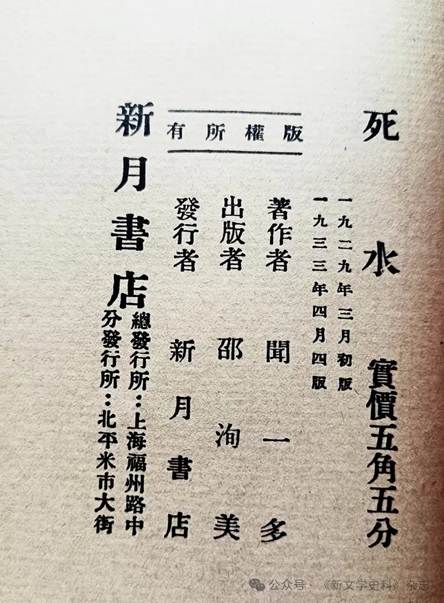 死水 實價五角五分
一九二九年三月初版
一九三三年四月四版
版權所有
著作者 聞一多
出版者 邵洵美
發行者 新月書店
新月書店
總發行所：上海福州路中
分發行所：北平米市大街
公众号·《新文学史料》杂志